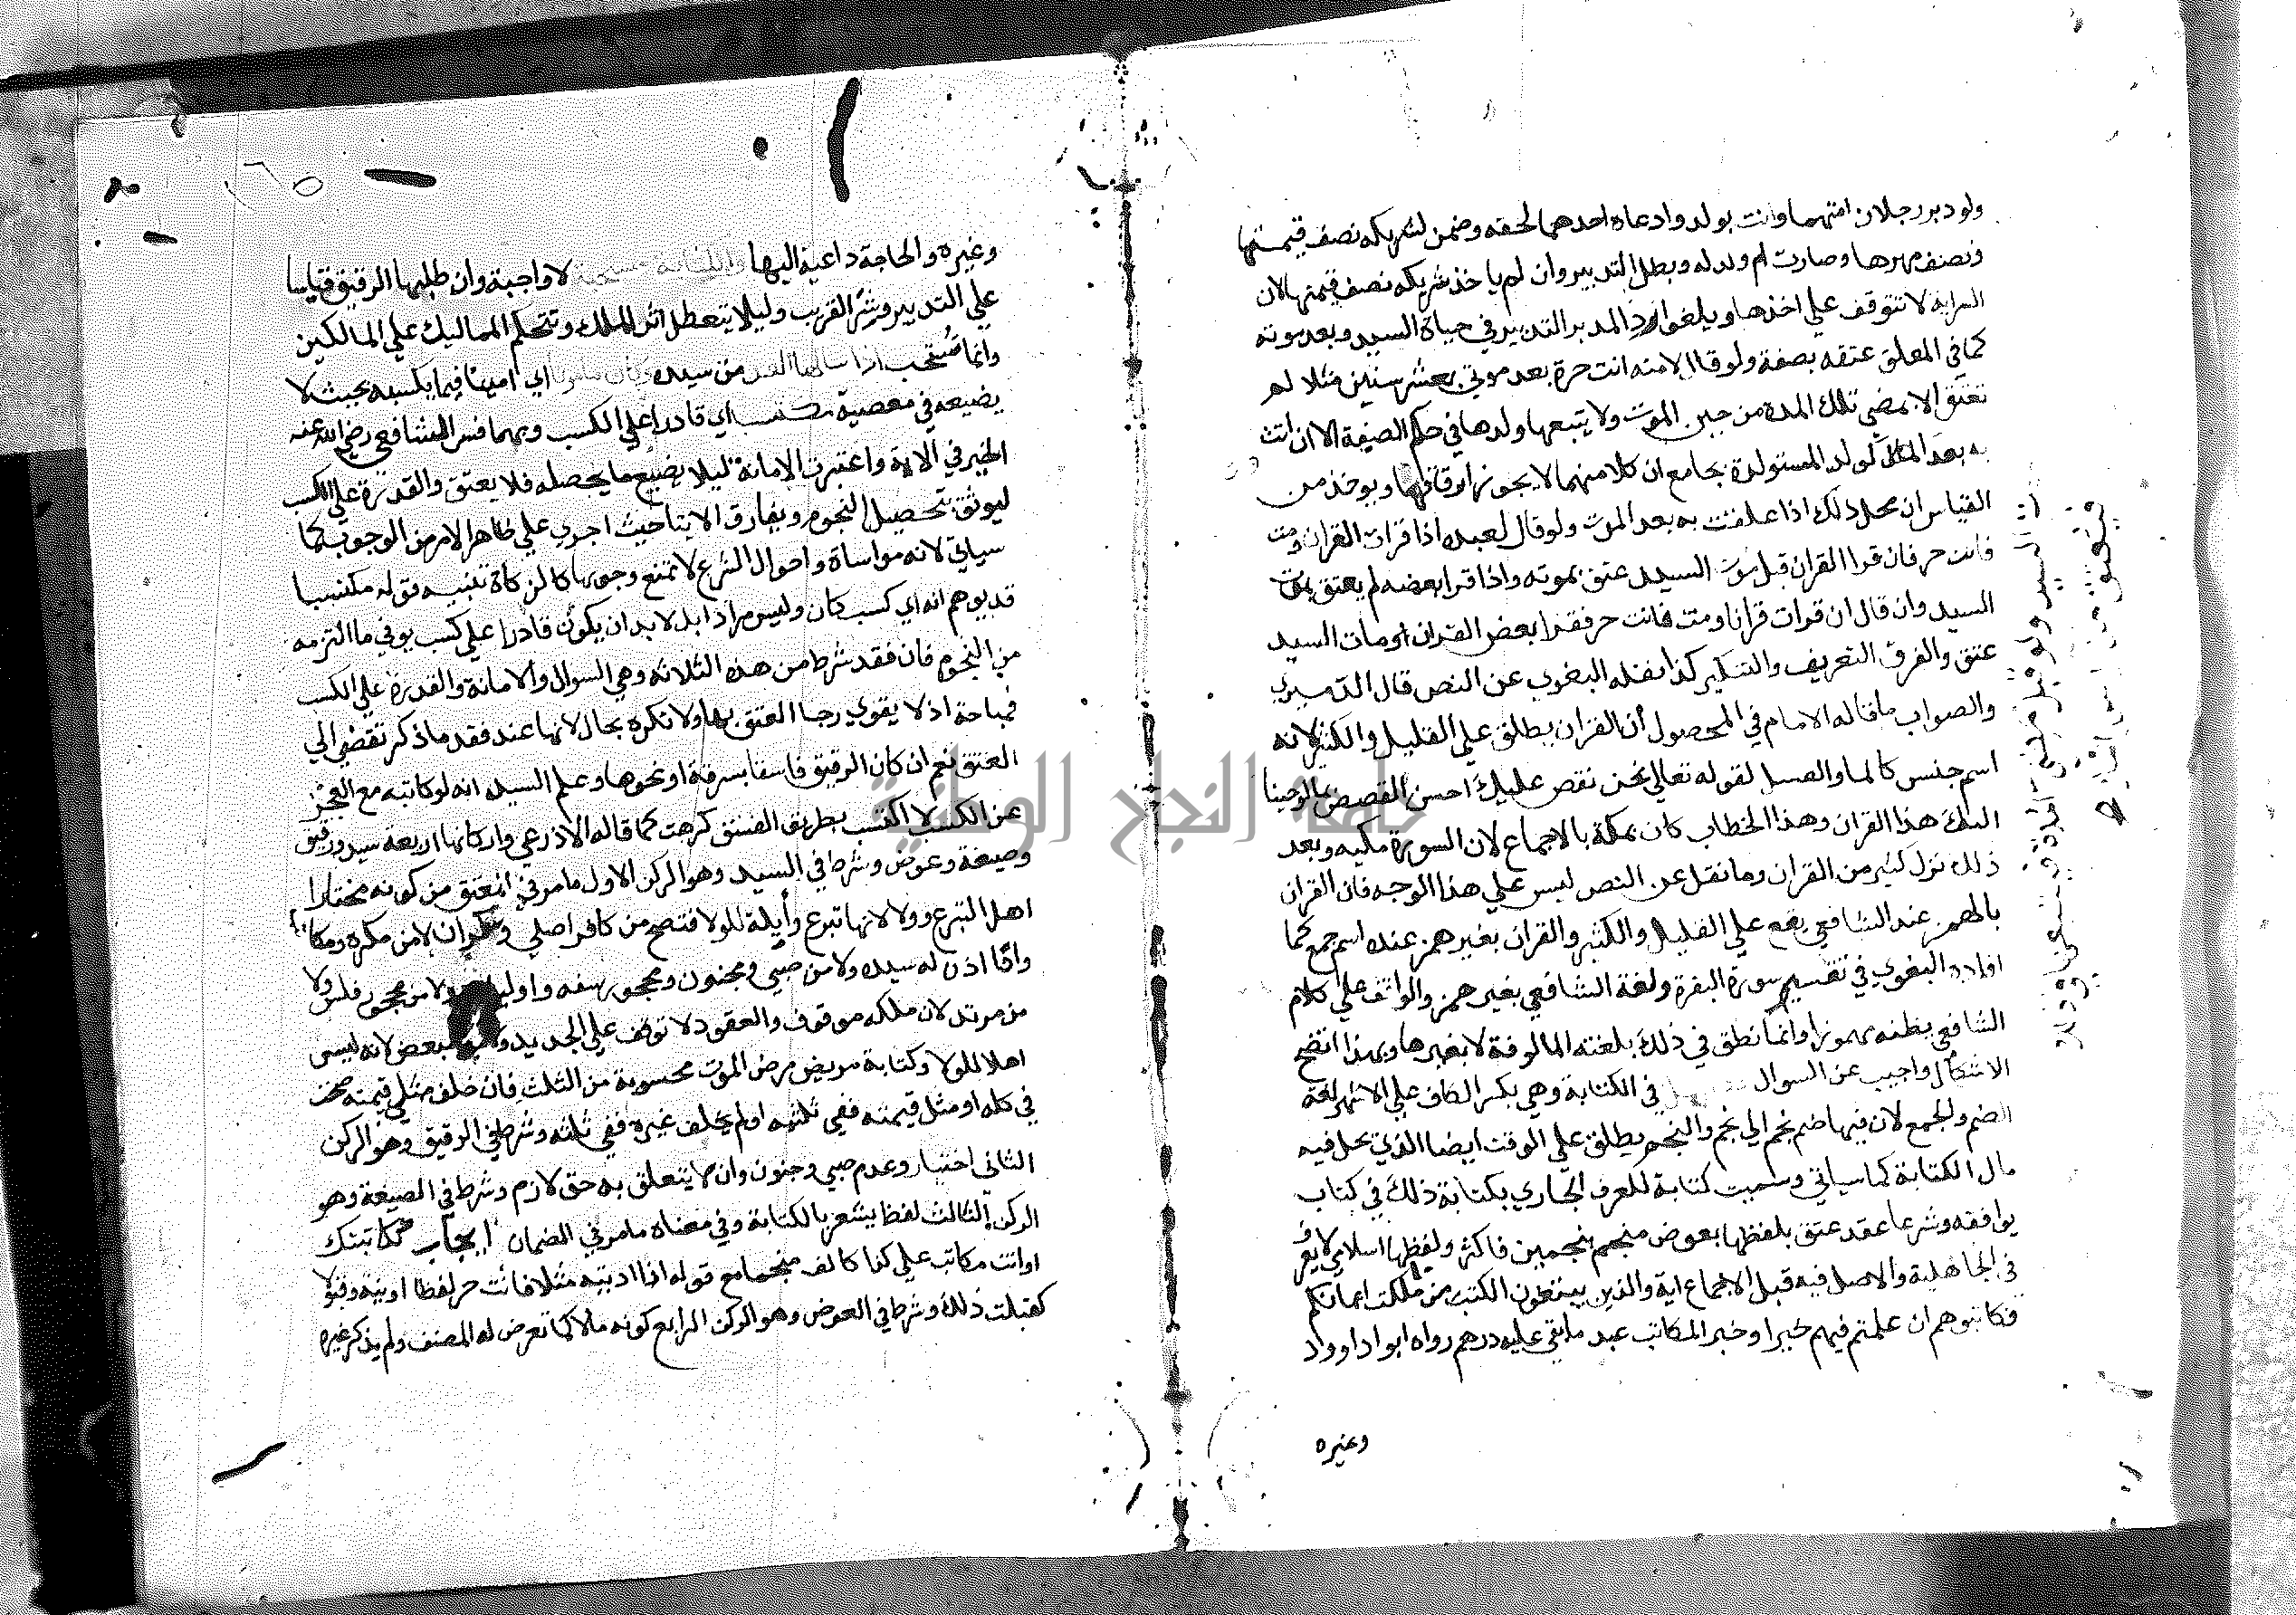 ولو دبر رجلان امتهما واتت بولد وادعاه احدهما لحقه وضمن لشريكه نصف قيمتها
ونصف مهرها وصارت ام ولد له وبطل التدبير وان لم ياخذ شريكه نصف قيمتها لان
السراية لا تتوقف علي اخذها ويلغوا رد المدبر التدبير في حياة السيد وبعد موته
كما في المعلق عتقه بصفة ولو قال لامته انت حرة بعد موتي بعشر سنين مثلا لم
تعتق الا بمضي تلك المدة من حين الموت ولا يتبعها ولدها في حكم الصيفة الا ان اتت
به بعد الموت كولد المستولدة بجامع ان كلا منهما لا يجوز ارقاقها ويوخذ من
القياس ان محل ذلك اذا علقت به بعد الموت ولو قال لعبده اذا قرات القران ومت
فانت حر فان قرا القران قبل موت السيد عتق بموته واذا قرا بعضه لم يعتق بموت
السيد وان قال ان قرات قرانا ومت فانت حر فقرا بعض القران ومات السيد
عتق والفرق التعريف والتنكير كذا نقله البغوي عن النص قال الدميري
والصواب ما قاله الامام في المحصول ان القران يطلق علي القليل والكثير لانه
اسم جنس كالما والعسل لقوله تعالي نحن نقص عليك احسن القصص بما اوحينا
اليك هذا القران وهذا الخطاب كان بمكة بالاجماع لان السورة مكيه وبعد
ذلك نزل كثير من القران وما نقل عن النص ليس علي هذا الوجه فان القران
بالهمز عند الشافعي يقع علي القليل والكثير والقران بغير همز عنده اسم جمع كما
افاده البغوي في تفسير سورة البقرة ولغة الشافعي بغير همز والواقف علي كلام
الشافعي يظنه مهموزا وانما نطق في ذلك بلغته المالوفة لا بغيرها وبهذا اتضح
الاشكال واجيب عن السوال في الكتابة وهي بكسر الكاف علي الاشهر لغة
الضم والجمع لان فيها ضم نجم الي نجم والنجم يطلق علي الوقت ايضا الذي يحل فيه
مال الكتابة كما سياتي وسميت كتابة للعرف الجاري بكتابة ذلك في كتاب
يوافقه وشرعا عقد عتق بلفظها بعوض منجم بنجمين فاكثر ولفظها اسلامي لا يعرف
في الجاهلية والاصل فيه قبل الاجماع اية والذين يبتغون الكتب مما ملكت ايمانكم
فكاتبوهم ان علمتم فيهم خيرا وخبر المكاتب عبد ما بقي عليه درهم رواه ابو داوود
وغيره
وغيره والحاجة داعية اليها لا واجبة وان طلبها الرقيق قياسا
علي التدبير وشرا القريب وليلا يتعطل اثر الملك وتتحكم المماليك علي المالكين
وانما تستحب اذا سالها العبد من سيده اي امينا فيما يكسبه بحيث لا
يضيعه في معصية اي قادرا علي الكسب وبهما فسر الشافعي رضي الله عنه
الخير في الاية واعتبرت الامانة ليلا يضيع ما يحصله فلا يعتق والقدرة علي الكسب
ليوثق بتحصيل النجوم ويفارق الايتا حيث اجري علي ظاهر الامر من الوجوب كما
سياتي لانه مواساة واحوال الشرع لا تمنع وجوبها كالزكاة تنبيه قوله مكتسبا
قد يوهم انه اي كسب كان وليس مرادا بل لا بد ان يكون قادرا علي كسب يوفي ما التزمه
من النجوم فان فقد شرط من هذه الثلاثه وهي السوال والامانة والقدرة علي الكسب
فمباحة اذ لا يقوي رجا العتق بها ولا تكره بحال لانها عند فقد ما ذكر تفضي الي
العتق نعم ان كان الرقيق فاسقا بسرقة او نحوها وعلم السيد انه لو كاتبه مع العجز
عن الكسب لاكتسب بطريق الفسق كرهت كما قاله الاذرعي واركانها اربعة سيد ورقيق
وصيغة وعوض وشرط في السيد وهو الركن الاول ما مر في المعتق من كونه مختارا
اهل التبرع وولا لانها تبرع وأيلة للولا فتصح من كافر اصلي وسكران لا من مكره ومكاتب
وان اذن له سيده ولا من صبي ومجنون ومحجور سفه واوليايهم ولا من محجور فلس ولا
من مرتد لان ملكه موقوف والعقود لا توقف علي الجديد ولا من مبعض لانه ليس
اهلا للولا وكتابة مريض مرض الموت محسوبة من الثلث فان خلف مثلي قيمته صحت
في كله او مثل قيمته ففي ثلثيه او لم يخلف غيره ففي ثلثه وشرط في الرقيق وهو الركن
الثاني اختيار وعدم صبي وجنون وان لا يتعلق به حق لازم وشرط في الصيغة وهو
الركن الثالث لفظ يشعر بالكتابة وفي معناه ما مر في الضمان ايجاب ككاتبتك
او انت مكاتب علي كذا كالف منجما مع قوله اذا اديته مثلا فانت حر لفظا او نية وقبولا
كقبلت ذلك وشرط في العوض وهو الركن الرابع كونه مالا كما تعرض له المصنف ولم يذكر غيره
جامعة النجاح الوطنية